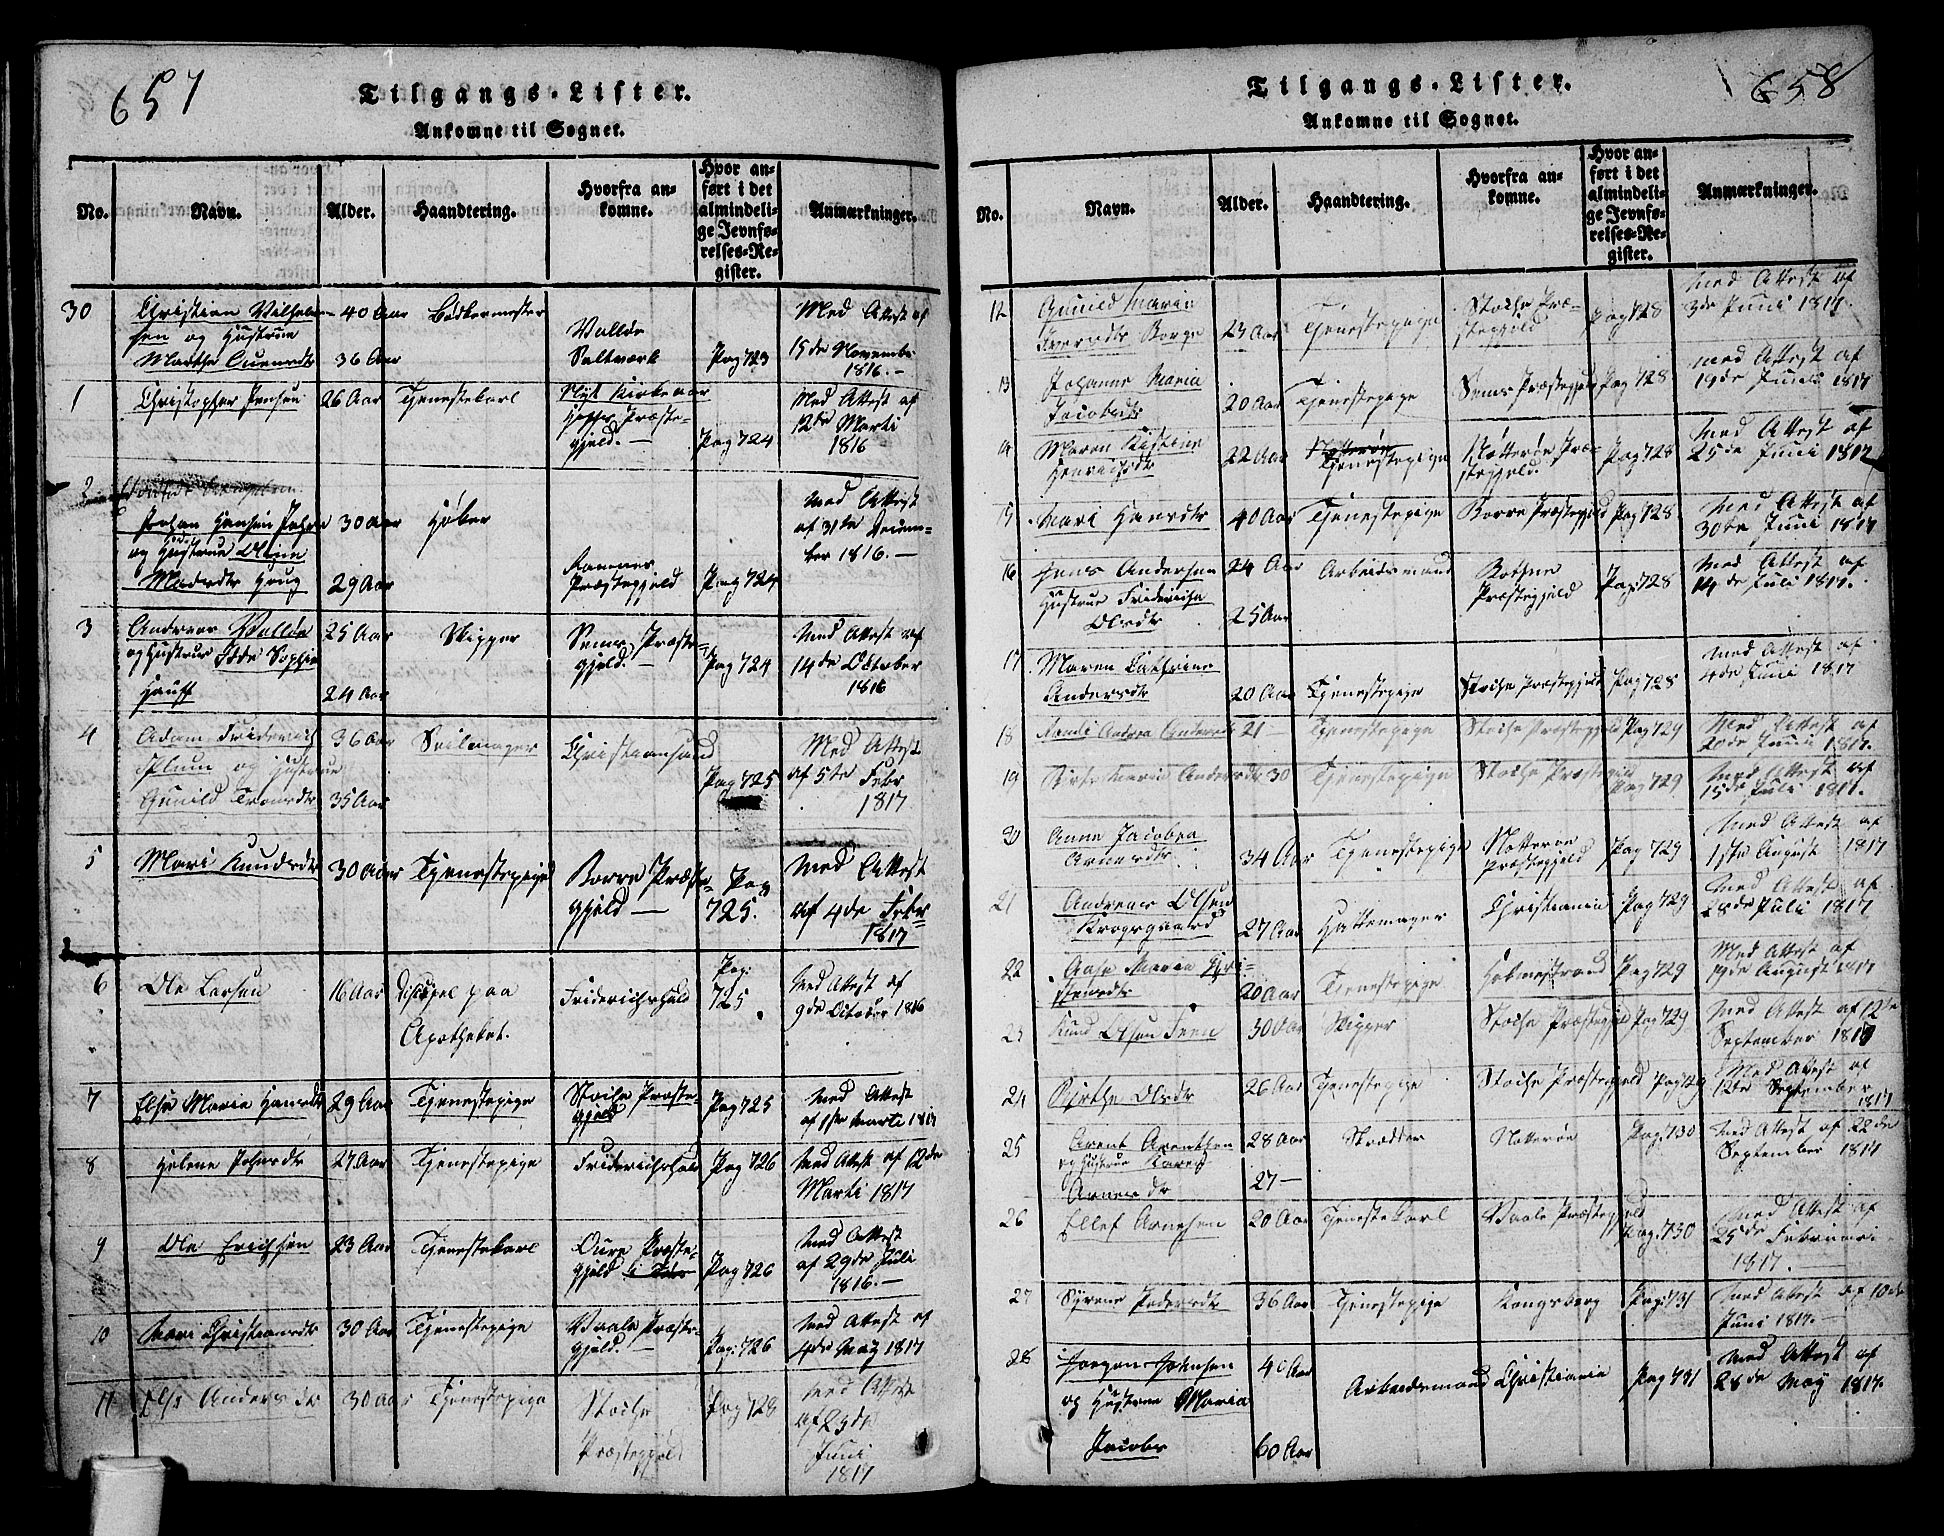 657
Tilgangs-Lister.
Ankomne til Sognet.
No. Navn. Alder. Haandtering. Hvorfra ankomne. Hvor anført i det almindelige Jevnførelses-Register. Anmærkninger.
30 Christian Vilhelmsen og Hustrue 40 Aar Bödkermester Vallöe Saltværk Pag 723 Med Attest af 15de November 1816.
Marthe 36 Aar
1 Christopher Jensen 26 Aar Tjenestekarl Præstegjeld. Pag 724 Med Attest af 12te Marti 1816
2 Johan Hansen 30 Aar Høker Ramnes Præstegjeld Pag 724 Med Attest af 31te December 1816.
og Hustrue Oline Madsdtr Krug 29 Aar
3 Andreas Valløe 25 Aar Skipper Sems Præstegjeld. Pag 724 Med Attest af 14de October 1816
og Hustrue Ide Sophie Hauff 24 Aar
4 Adam Friderich Plum og Hustrue 36 Aar Seilmager Christiansund Pag 725 Med Attest af 5te Febr 1817
Gunild 35 Aar
5 Mari Knudsdtr 30 Aar Tjenestepige Borre Præstegjeld Pag 725. Med Attest af 4de Febr 1817
6 Ole Larsen 16 Aar Discipel paa Apotheket. Friderichshald Pag: 725 Med Attest af 9de October 1816
7 Else Maria Hansdtr 29 Aar Tjenestepige Stocke Præstegjeld Pag 725 Med Attest af 1ste Marti 1817
8 Helene Johnsdtr 27 Aar Tjenestepige Friderichshald Pag 726 Med Attest af 12de Marti 1817
9 Ole Erichsen 23 Aar Tjenestekarl Præstegjeld Pag 726 Med Attest af 29de Juli 1816.
10 Mari Christiansdtr 30 Aar Tjenestepige Vaale Præstegjeld. Pag: 726 Med Attest af 4de May 1817
11 Else Andersdtr 30 Aar Tjenestepige Stocke Præstegjeld Pag 728 Med Attest af 23de Juni 1817
658
Tilgangs-Lister.
Ankomne til Sognet.
No. Navn. Alder. Haandtering. Hvorfra ankomne. Hvor anført i det almindelige Jevnførelses-Register. Anmærkninger.
12 Gunild Maria Iversdtr Borge 23 Aar Tjenestepige Stocke Præstegjeld Pag 728 Med Attest af 3de Juni 1817.
13 Johanne Maria Jacobsdtr 20 Aar Tjenestepige Sems Præstegjeld Pag 728 Med Attest af 19de Juni 1817
14 Maren Kistine Henrichsdtr 22 Aar Tjenestepige Nøtterøe Præstegjeld. Pag 728 Med Attest af 25de Juni 1817
15 Mari Hansdtr 40 Aar Tjenestepige Borre Præstegjeld Pag 728 Med Attest af 30te Juni 1817
16 Hans Andersen 24 Aar Arbeidsmand Bothne Præstegjeld Pag: 728 Med Attest af 14de Juli 1817.
Hustrue Fridericha Olsdtr 25 Aar
17 Maren Cathrine Andersdtr 20 Aar Tjenestepige Stocke Præstegjeld Pag 728 Med Attest af 4de Juni 1817
18 Randi Andrea Andersdtr 21 Tjenestepige Stocke Præstegjeld Pag 729 Med Attest af 20de Juni 1817.
19 Maria Andersdtr 30 Tjenestepige Stocke Præstegjeld Pag 729 Med Attest af 15de Juli 1817.
20 Anne Jacobea Arnesdtr 34 Aar Tjenestepige Nøtterøe Præstegjeld Pag 729 Med Attest af 1ste August 1817
21 Andreas Olsen 27 Aar Hattemager Christiania Pag 729 Med Attest af 28de Juli 1817
22 Aase Maria 20 Aar Tjenestepige Holmestrand Pag 729 Med Attest af 19de August 1817
23 Knud Olsen 30 Aar Skipper Stocke Præstegjeld Pag 729 Med Attest af 12te September 1817
24 Birthe Olsdtr 26 Aar Tjenestepige Stocke Præstegjeld Pag 729 Med Attest af 12te September 1817
25 Arent Arentsen 28 Aar Skrædder Nøtterøe Pag: 730 Med Attest af 22de September 1817
og Hustrue Karen Arnesdtr 27
26 Ellef Arnesen 20 Aar Tjenestekarl Vaale Præstegjeld Pag. 730 Med Attest af 25de Februari 1817.
27 Syrene Pedersdtr 36 Aar Tjenestepige Kongsberg Pag: 731 Med Attest af 10de Juni 1817.
28 Jørgen Johnsen 40 Aar Arbeidsmand Christiania Pag 731 Med Attest af 28de May 1817.
og Hustrue Maria Jacobs 60 Aar